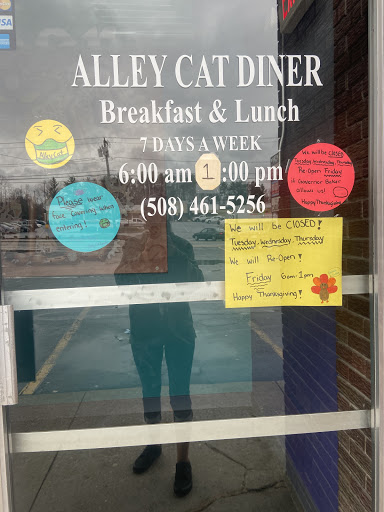 VISA
ALLEY CAT DINER
Breakfast & Lunch
7 DAYS A WEEK
6:00 am 1:00 pm
(508) 461-5256
AlleyCat
Please wear
face covering when
entering!
We will be CLOSED
Tuesday, Wednesday, Thursday
Re-Open Friday
if Governor Baker
allows us!
Happy Thanksgiving
We will be CLOSED!
Tuesday, Wednesday, Thursday
We will Re-Open!
Friday 6am-1pm
Happy Thanksgiving!